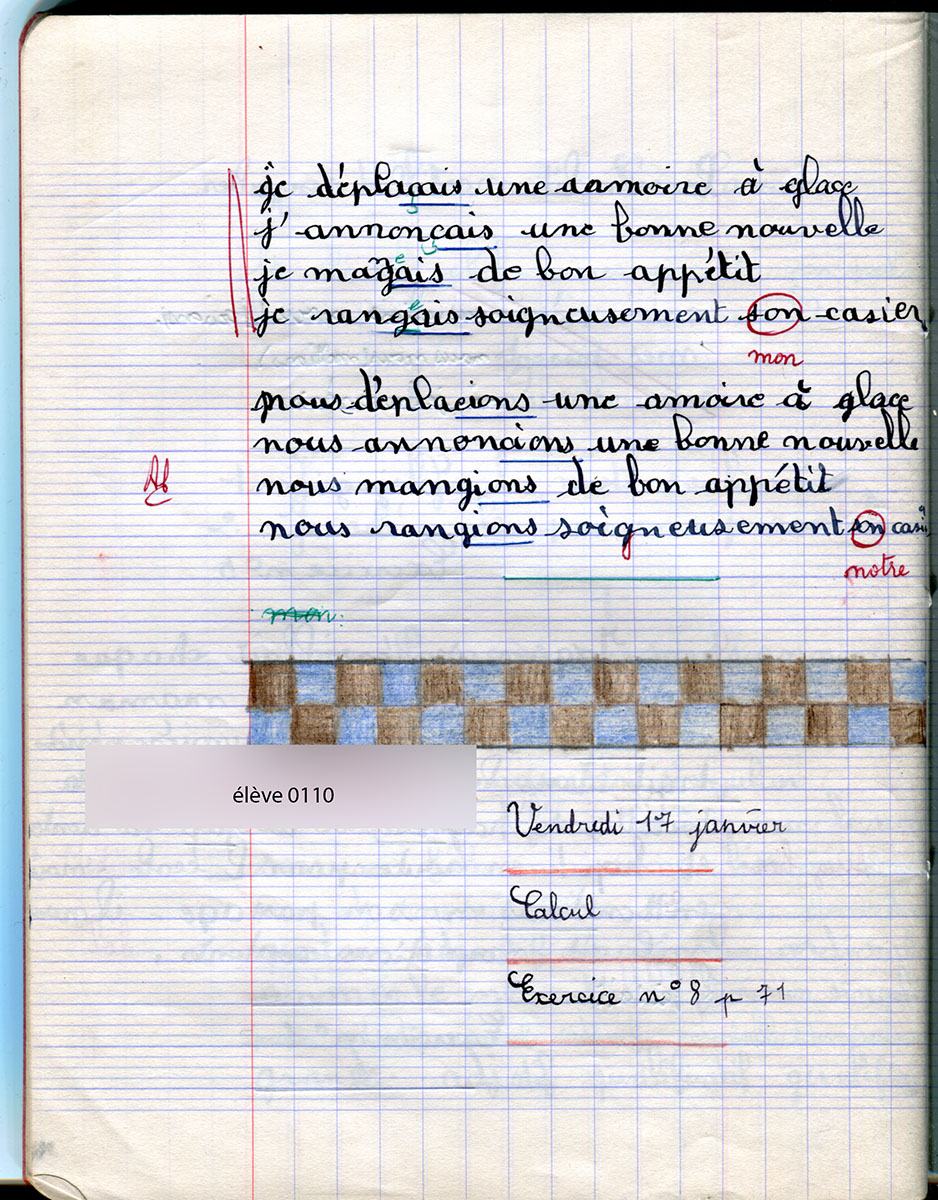 je déplaçais une aamoire à glace
j'annonçais une bonne nouvelle
je mangeais de bon appétit
je rangeais soigneusement son casier
mon
nous déplacions une amoire à glace
nous annoncions une bonne nouvelle
Ab
nous mangions de bon appétit
nous rangions soigneusement son casi
notre
mon.
élève 0110
Vendredi 17 janvier
Calcul
Exercice n° 8 p 71